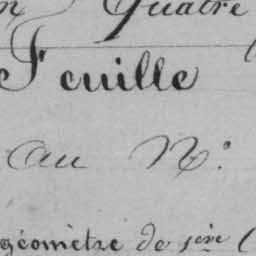 n Quatre
Feuille
au N.º
géomètre de 1ère